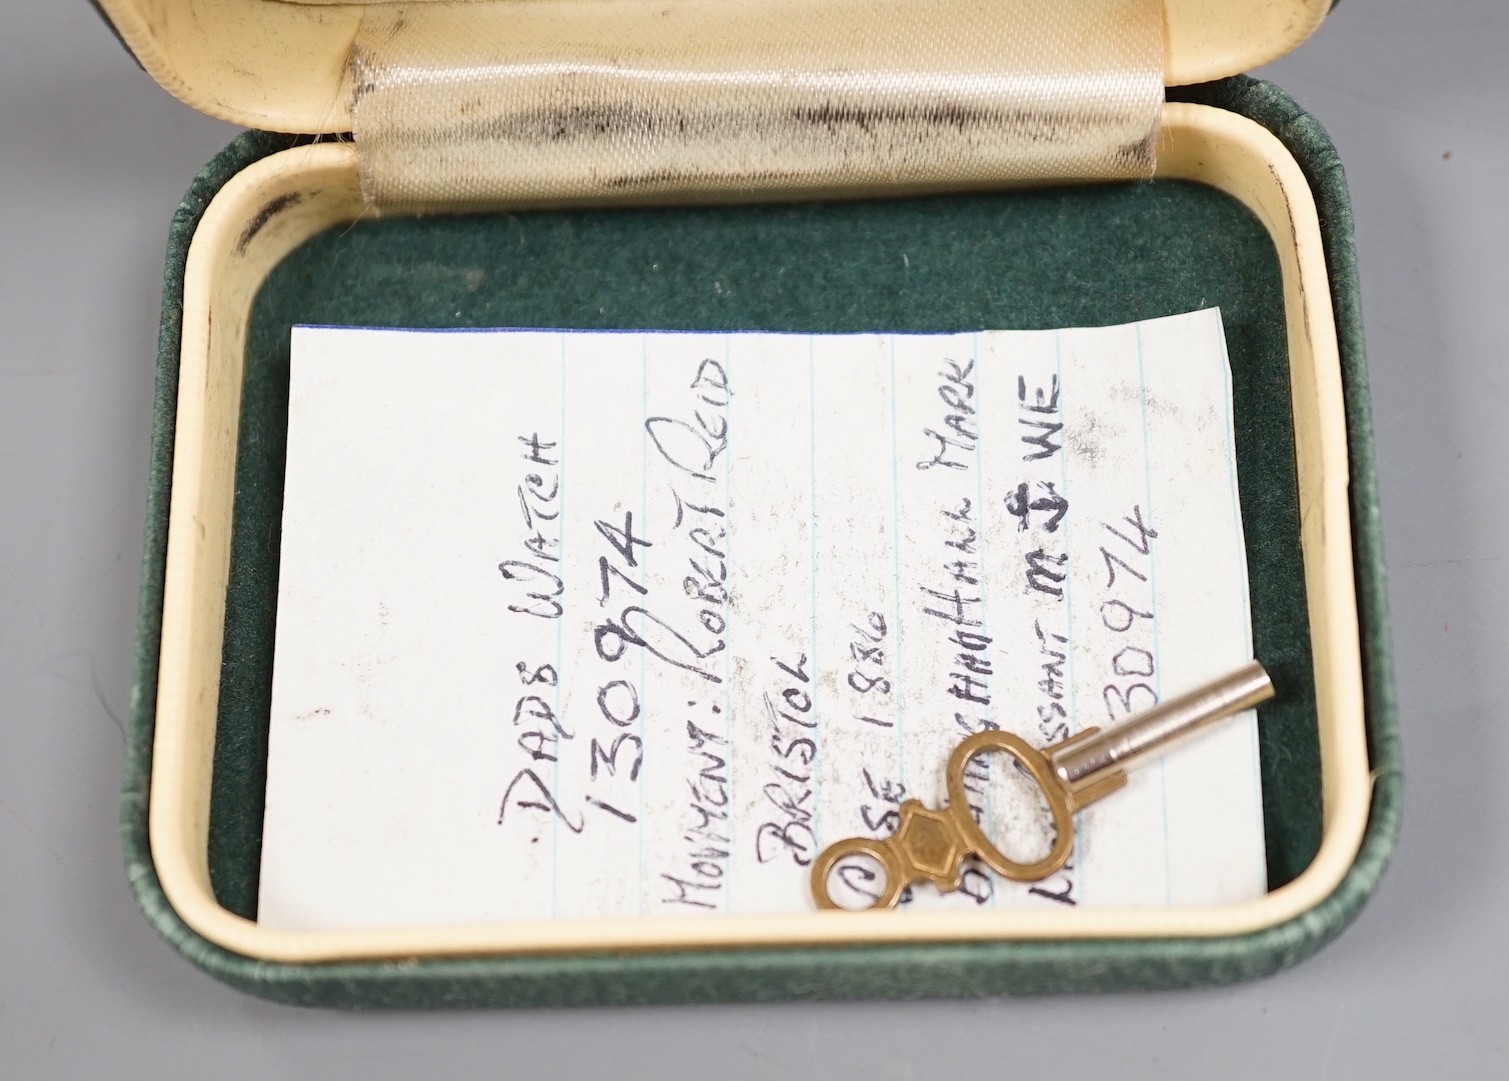 DADS WATCH
130974
MOVMENT: ROBERT REID
BRISTOL
1886
HALL MARK
M WE
30974